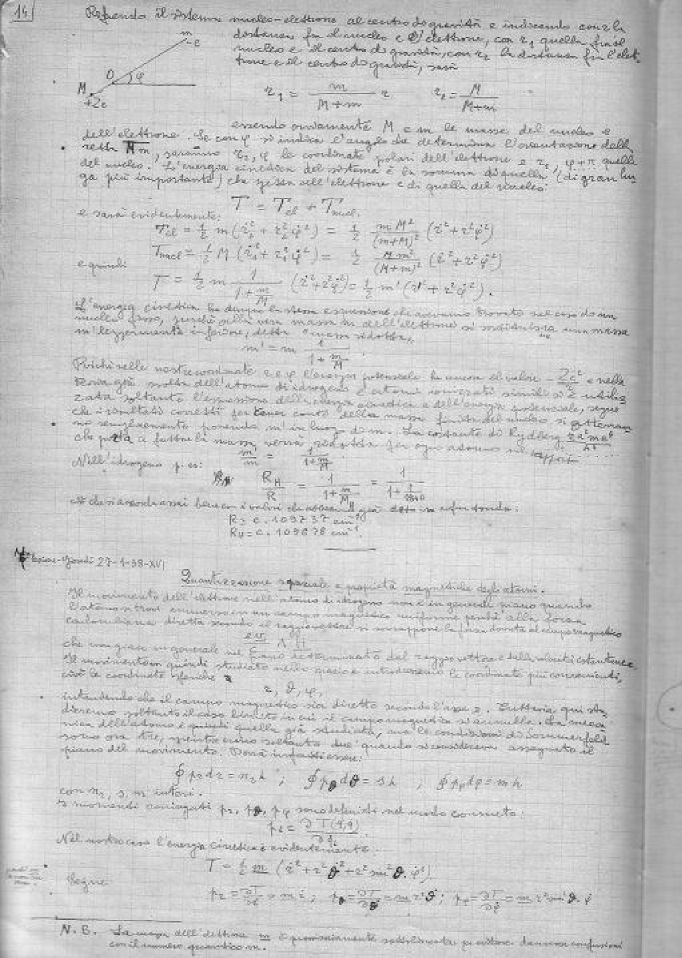 14)
Riferendo il sistema nucleo-elettrone al centro di gravità e indicando con r la
distanza fra il nucleo e l'elettrone, con r₁ quella fra il
nucleo e il centro di gravità, con r₂ la distanza fra l'elet-
trone e il centro di gravità, sarà
m
-e
O φ
M
+Ze
r₁ = m/(M+m) r r₂ = M/(M+m)
essendo ovviamente M e m le masse del nucleo e
dell'elettrone. Se con φ si indica l'angolo che determina l'orientazione della
retta Mm, saranno r₂, φ le coordinate polari dell'elettrone e r₁, φ+π quelle
del nucleo. L'energia cinetica del sistema è la somma di quella (di gran lun-
ga più importante) che spetta all'elettrone e di quella del nucleo:
T = T_el + T_nucl.
e sarà evidentemente:
T_el = ½ m (ṙ₂² + r₂² φ̇²) = ½ mM²/(m+M)² (ṙ² + r² φ̇²)
T_nucl = ½ M (ṙ₁² + r₁² φ̇²) = ½ Mm²/(M+m)² (ṙ² + r² φ̇²)
e quindi
T = ½ m 1/(1+m/M) (ṙ² + r² φ̇²) = ½ m' (ṙ² + r² φ̇²).
L'energia cinetica ha dunque la stessa espressione che avevamo trovato nel caso di un
nucleo fisso, purché alla vera massa m dell'elettrone si sostituisca una massa
m' leggermente inferiore, detta "massa ridotta",
m' = m 1/(1+m/M)
Poiché nelle nostre coordinate r e φ l'energia potenziale ha ancora il valore - Ze²/r e nella
teoria già svolta dell'atomo di idrogeno e atomi ionizzati simili si è utiliz-
zata soltanto l'espressione dell'energia cinetica e dell'energia potenziale, segue
che i risultati corretti per tener conto della massa finita del nucleo si otterran-
no semplicemente ponendo m' in luogo di m. La costante di Rydberg
che porta a fattore la massa verrà ridotta per ogni atomo nel rapporto
m'/m = 1/(1+m/M)
Nell'idrogeno p. es:
R_H/R = 1/(1+m/M) = 1/(1+1/1840)
il che si accorda assai bene con i valori che già
R = c. 109737 cm⁻¹
R_H = c. 109678 cm⁻¹
Lezione - Giovedì 27-1-38-XVI
Quantizzazione spaziale e proprietà magnetiche degli atomi.
Il movimento dell'elettrone nell'atomo di idrogeno non è in generale piano quando
l'atomo si trovi immerso in un campo magnetico uniforme perché alla forza
coulombiana diretta secondo il raggio vettore si sovrappone la forza dovuta al campo magnetico
ev/c ∧ H
che non giace in generale nel piano determinato dal raggio vettore e dalla velocità istantanea.
Il movimento va quindi studiato nello spazio e introdurremo le coordinate più convenienti,
cioè le coordinate sferiche
r, ϑ, φ,
intendendo che il campo magnetico sia diretto secondo l'asse z. Tuttavia qui stu-
dieremo soltanto il caso limite in cui il campo magnetico si annulla. La mecca-
nica dell'atomo è quindi quella già studiata, ma le condizioni di Sommerfeld
sono ora tre, mentre erano soltanto due quando si considerava assegnato il
piano del movimento. Dovrà infatti essere:
∮ p_r dr = n_r h ; ∮ p_ϑ dϑ = s h ; ∮ p_φ dφ = m h
con n_r, s, m interi.
I momenti coniugati p_r, p_ϑ, p_φ sono definiti nel modo consueto:
p_i = ∂T(q,q̇)/∂q̇_i
Nel nostro caso l'energia cinetica è evidentemente
T = ½ m (ṙ² + r² ϑ̇² + r² sin²ϑ · φ̇²)
Segue
p_r = ∂T/∂ṙ = m ṙ ; p_ϑ = ∂T/∂ϑ̇ = m r² ϑ̇ ; p_φ = ∂T/∂φ̇ = m r² sin²ϑ · φ̇
N.B. La massa dell'elettrone m è provvisoriamente sottolineata per evitare dannose confusioni
con il numero quantico m.